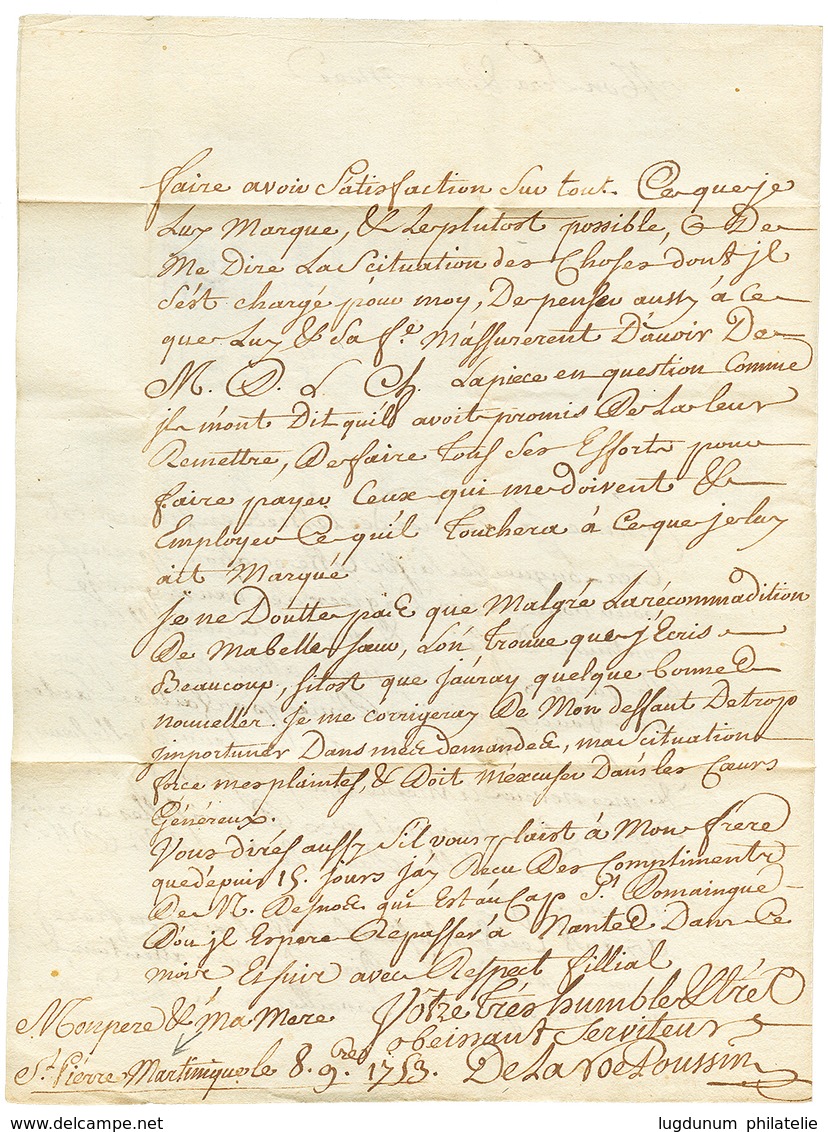 faire avoir Satisfaction Sur tout. Ce que je
Luy Marque, & Le plutost possible, & De
Me Dire La Scituation des Choses dont jl
S'est chargé pour moy, De penser aussy à ce
que Luy & Sa f.e M'assurerent D'avoir De
M. D. L Ch. La piece en question Comme
jls m'ont Dit qu'ils avoit promis De La leur
Remettre, De faire Tous Ses Efforts pour
faire payer Ceux qui me doivent &
Employer Ce qu'il Touchera à Ce que je luy
ait Marqué
je ne Doutte pas que Malgré La récommadition
De Ma belle sœur, L'on Trouve que j'Ecris
Beaucoup, sitost que j'auray quelque bonnes
nouvelles. je me corrigeray De Mon deffaut De trop
jmportuner Dans mes demandes, ma Scituation
force mes plaintes, & Doit m'excuser Dans les Cœurs
Généreux.
Vous dirés aussy S'il vous plaist à Mon frère
que depuis 15. jours j'ay Recu Des Compliments
De M. Desnos qui Est au Cap S.t Domaingue
D'ou jl Espere Repasser à Nantes Dans Ce
mois Et suis avec Respect fillial
Mon pere & ma Mere Votre Trés humble & trés
obeissant Serviteur
St. Pierre Martinique le 8. 9.bre 1753. De La Poussin
lugdunum philatelie